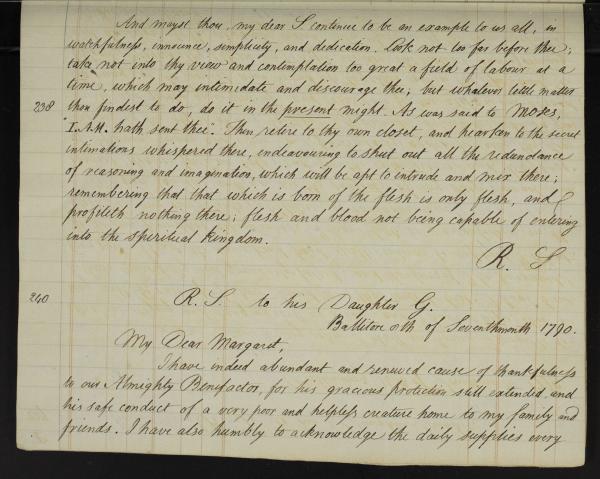 And mayst thou, my dear S. continue to be an example to us all, in
watchfulness, innocence, simplicity, and dedication. Look not too far before thee;
take not into thy view and contemplation too great a field of labour at a
time, which may intimidate and discourage thee; but whatever little matter
238 thou findest to do, do it in the present might. As was said to Moses,
"I. AM. hath sent thee". Then retire to thy own closet, and hearken to the secret
intimations whispered there, endeavouring to shut out all the redundance
of reasoning and imagination, which will be apt to intrude and mix there;
remembering that that which is born of the flesh is only flesh, and
profiteth nothing there; flesh and blood not being capable of entering
into the spiritual kingdom.
R. S
240 R. S. to his Daughter G.
Ballitore of Seventhmonth 1790.
My Dear Margaret,
I have indeed abundant and renewed cause of thankfulness
to our Almighty Benefactor, for his gracious protection still extended, and
his safe conduct of a very poor and helpless creature home to my family and
friends. I have also humbly to acknowledge the daily supplies every